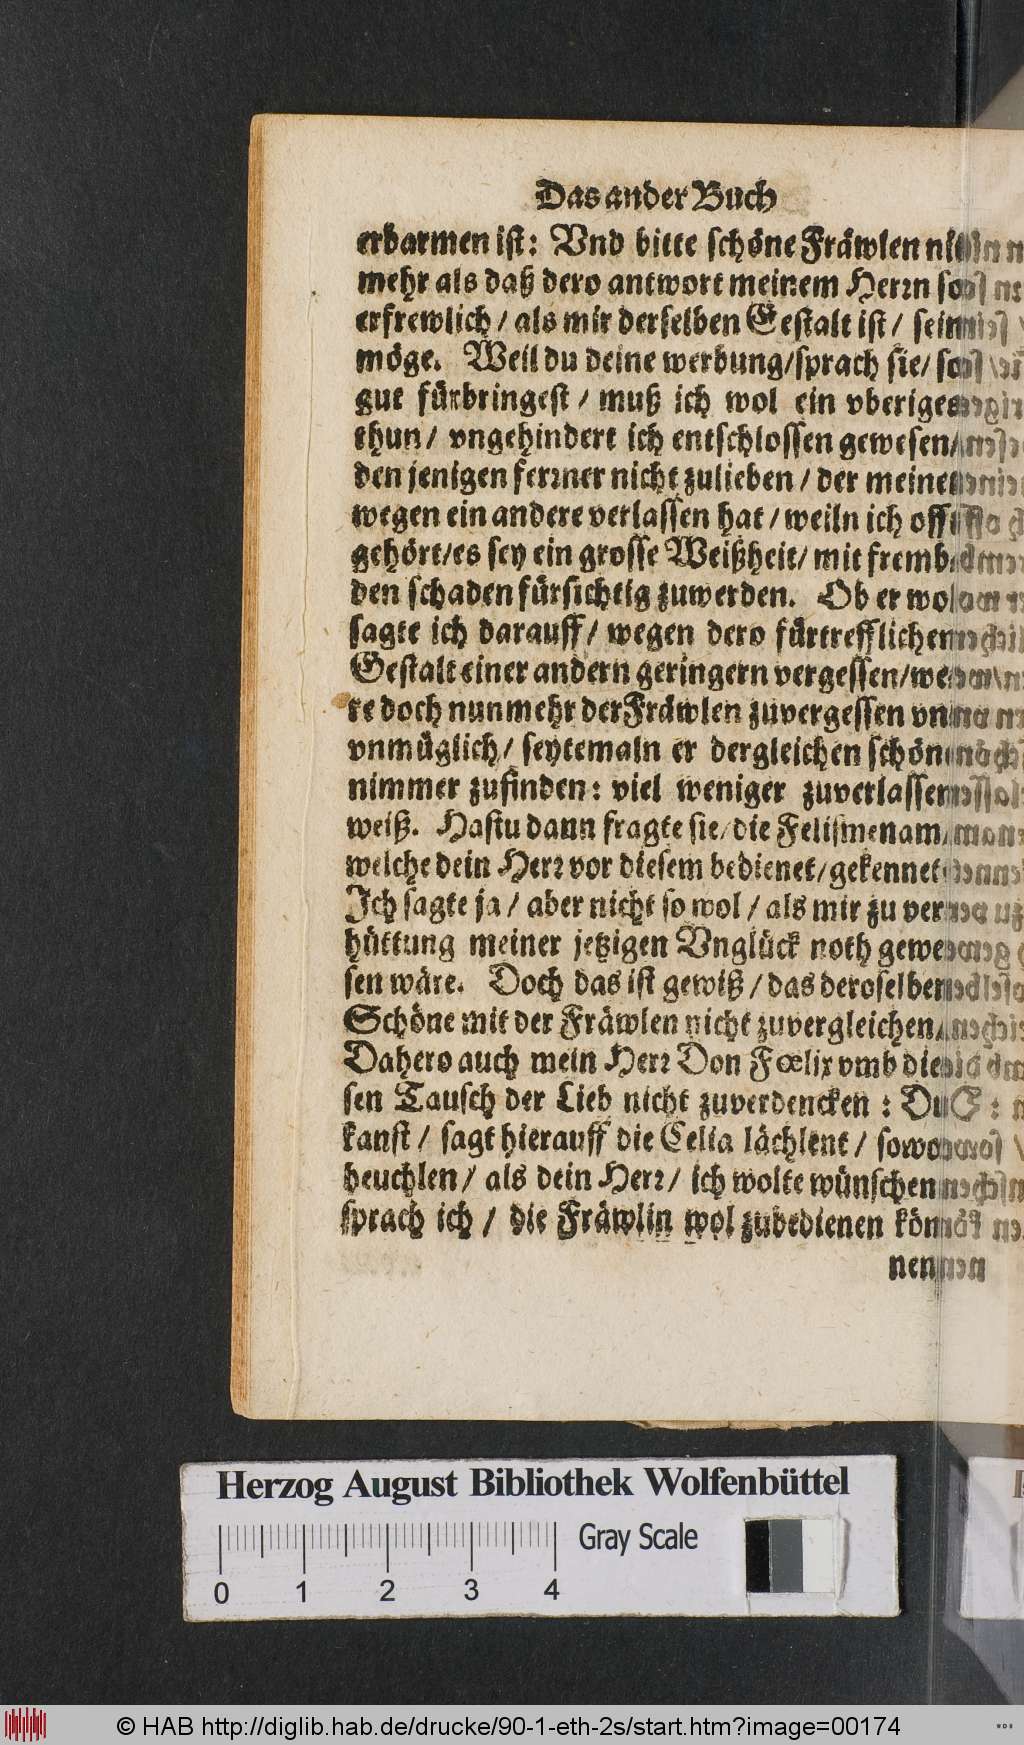 Das ander Buch
erbarmen ist: Vnd bitte schöne Fräwlen
mehr als daß dero antwort meinem Herꝛn so
erfrewlich / als mir derselben Gestalt ist / sein
möge. Weil du deine werbung/sprach sie/ so
gut fürbringest / muß ich wol ein vberiges
thun / vngehindert ich entschlossen gewesen/
den jenigen ferꝛner nicht zulieben / der meinet
wegen ein andere verlassen hat / weiln ich offt
gehört/es sey ein grosse Weißheit/ mit fremb
den schaden fürsichtig zuwerden. Ob er wol
sagte ich darauff / wegen dero fürtrefflichen
Gestalt einer andern geringern vergessen/we
re doch nunmehr der Fräwlen zuvergessen vn
vnmüglich / seytemaln er dergleichen schön
nimmer zufinden: viel weniger zuverlassen
weiß. Hastu dann fragte sie/ die Felismenam/
welche dein Herꝛ vor diesem bedienet/gekennet
Ich sagte ja / aber nicht so wol / als mir zu ver
hüttung meiner jetzigen Vnglück noth gewe
sen wäre. Doch das ist gewiß / das deroselben
Schöne mit der Fräwlen nicht zuvergleichen/
Dahero auch mein Herꝛ Don Fœlix vmb die
sen Tausch der Lieb nicht zuverdencken: Du
kanst / sagt hierauff die Celia lächlent / sowo
heuchlen / als dein Herꝛ / ich wolte wünschen
sprach ich / die Fräwlin wol zubedienen kön
nen
Herzog August Bibliothek Wolfenbüttel
Gray Scale
0 1 2 3 4
© HAB http://diglib.hab.de/drucke/90-1-eth-2s/start.htm?image=00174